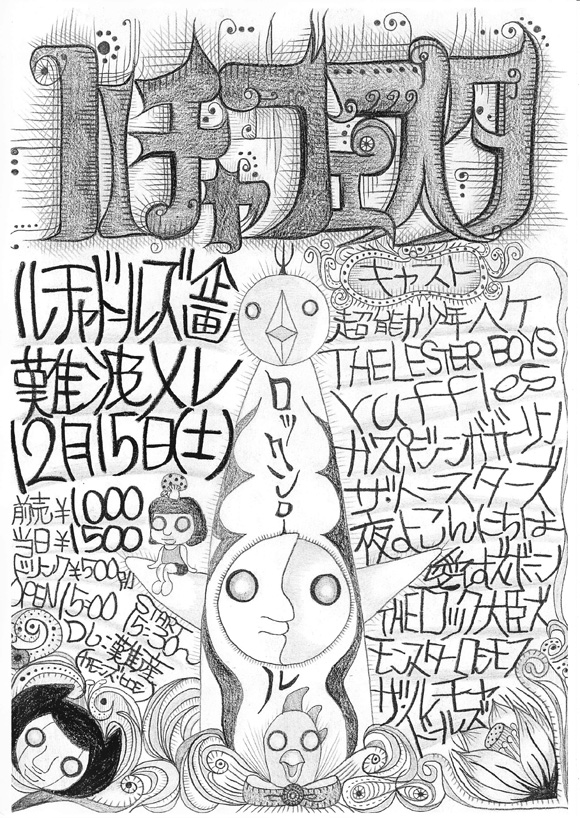 ルチャフェスタ
ルチャドールズ企画
難波メレ
12月15日(土)
前売¥1000
当日¥1500
ドリンク¥500
OPEN15:00
START
15:30〜
DJ:難産
ロックンロール
キャスト
超能力少年ハケ
THE LESTER BOYS
ruffles
ザ・トースターズ
夜よこんにちは
愛はズボーン
THEロック大臣ズ
モンスターロシモフ
ザ・ルチャ
ドールズ